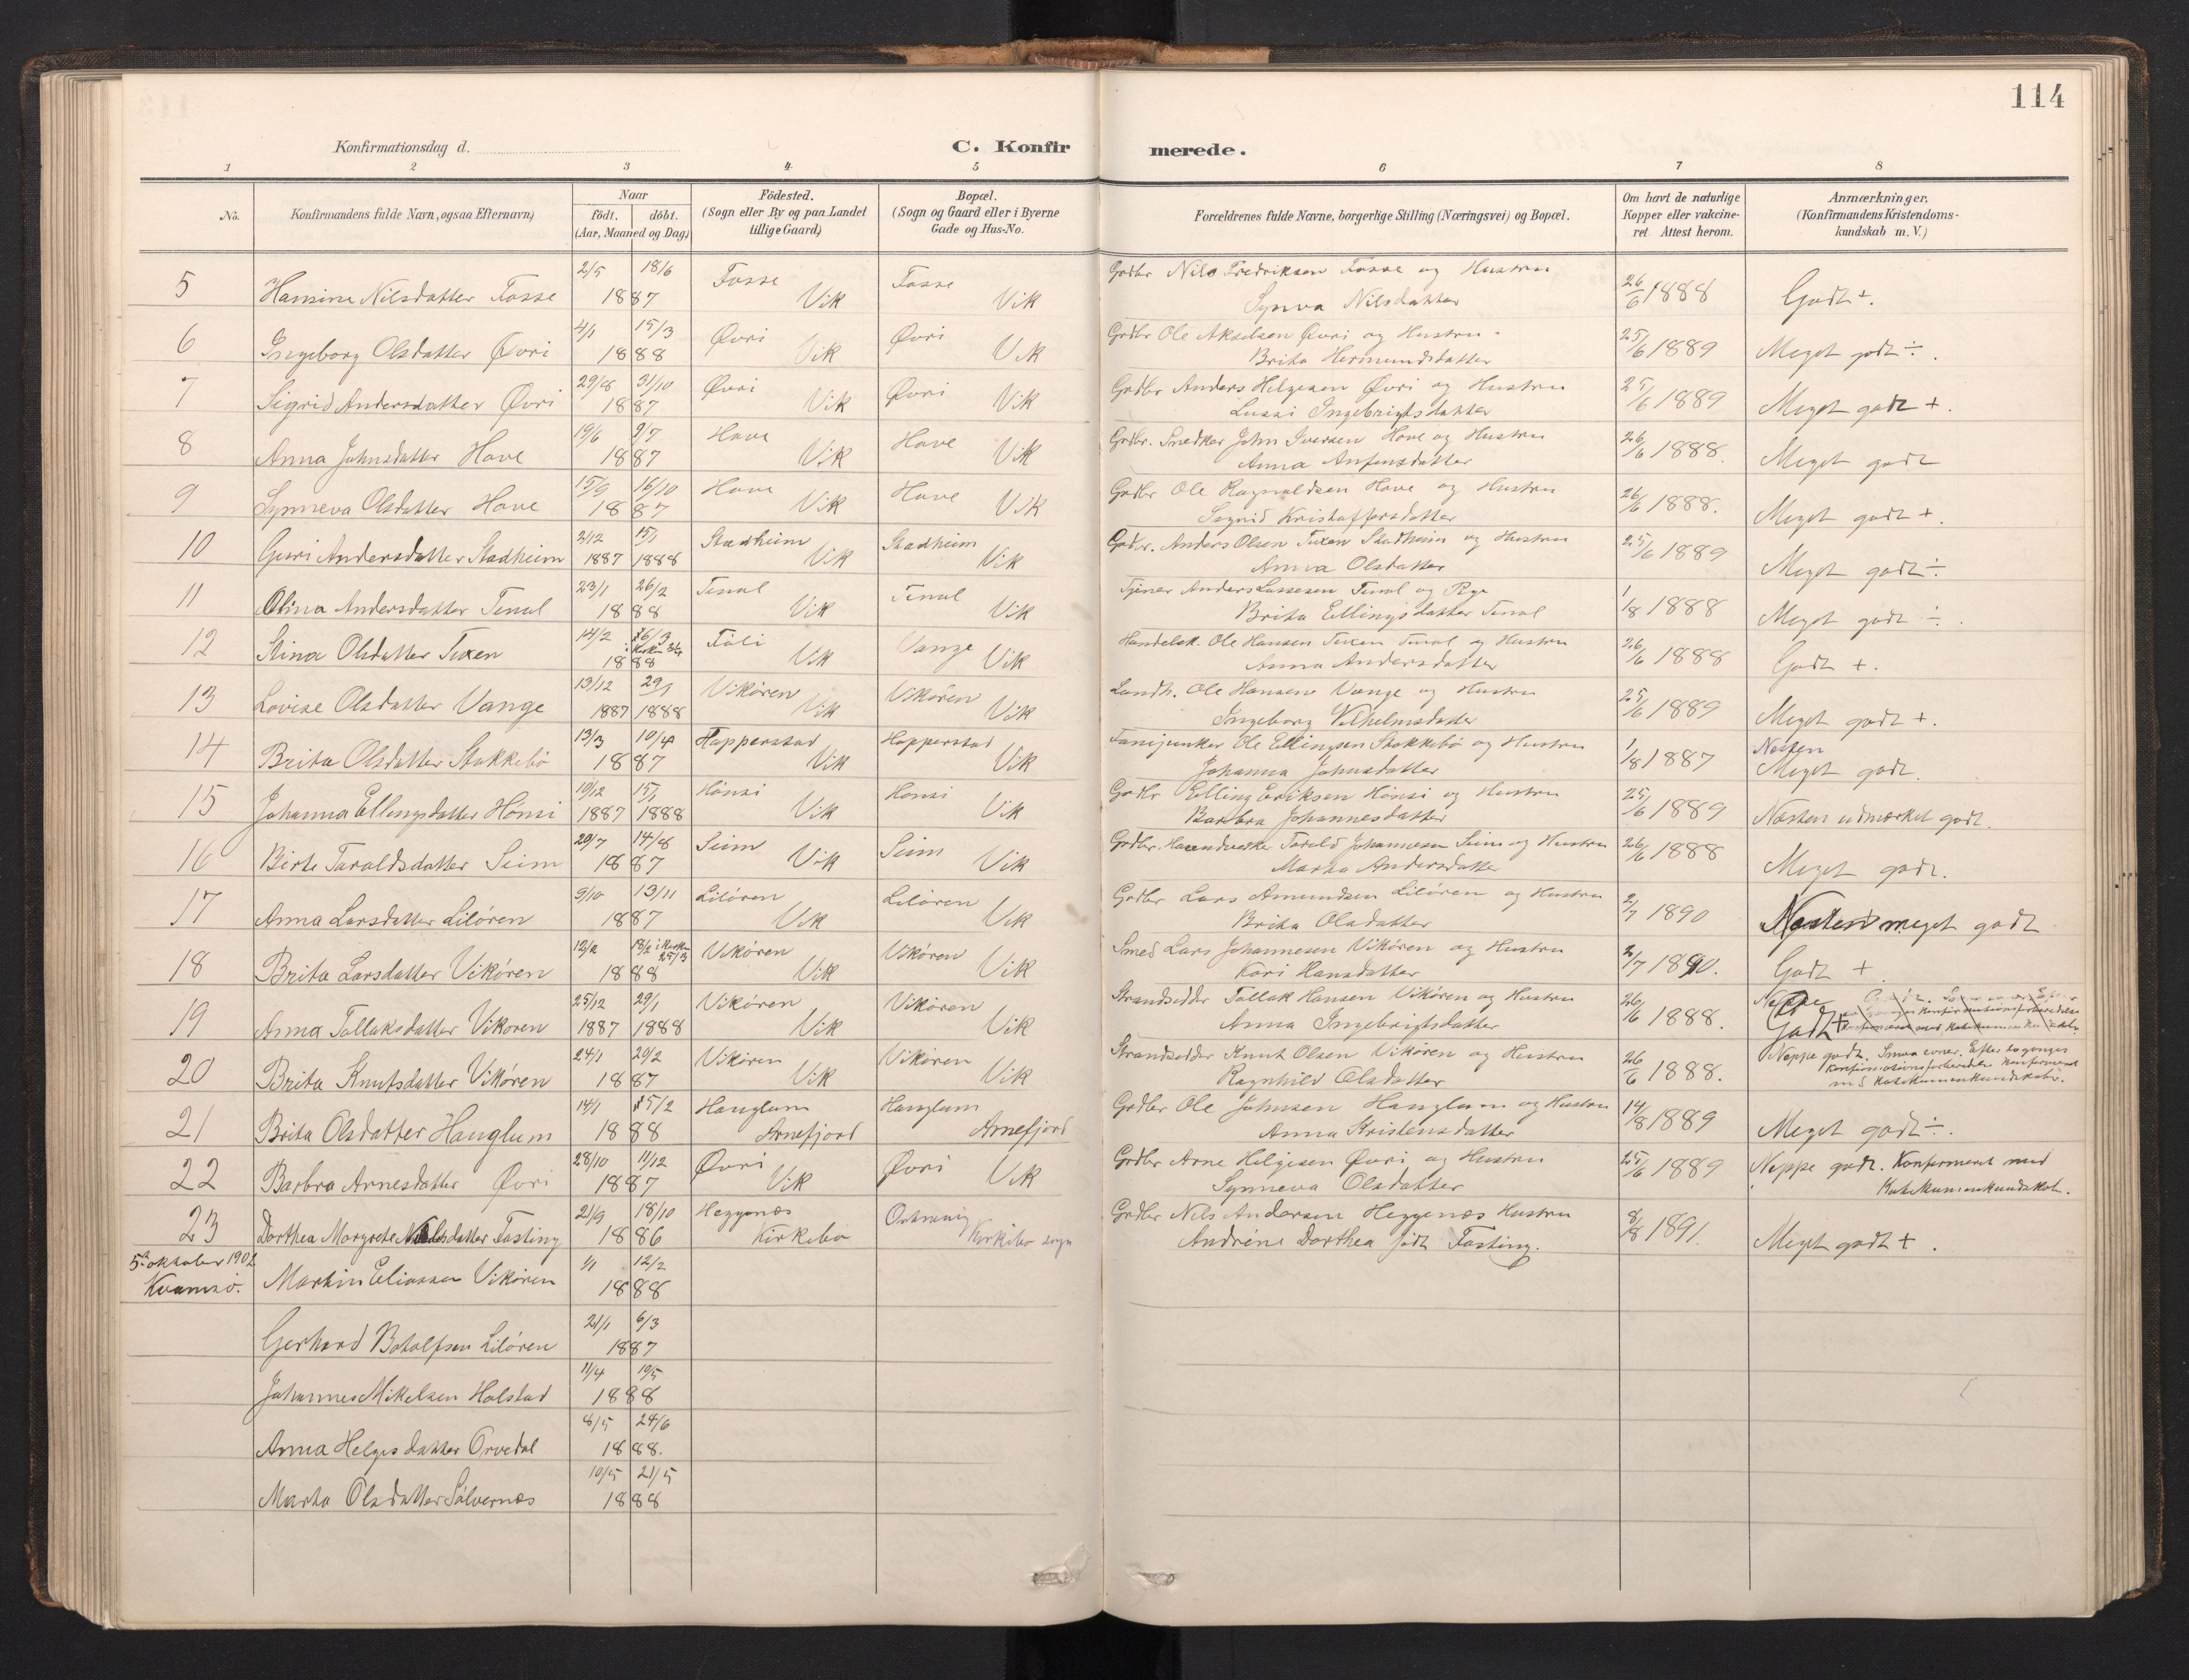 114
Konfirmationsdag d.
C. Konfirmerede.
1 2 3 4 5 6 7 8
No. Konfirmandens fulde Navn, ogsaa Efternavn) Naar födt. döbt. (Aar, Maaned og Dag) Födested. (Sogn eller By og paa Landet tillige Gaard) Bopæl. (Sogn og Gaard eller i Byerne Gade og Hus-No. Forældrenes fulde Navne, borgerlige Stilling (Næringsvei) og Bopæl. Om havt de naturlige Kopper eller vakcineret Attest herom. Anmærkninger, (Konfirmandens Kristendomskundskab m. V.)
5 Hansine Nilsdatter Fosse 2/5 18/6 1887 Fosse Vik Fosse Vik Grdbr Nils Fredriksen Fosse og Hustru Synva Nilsdatter 26/6 1888 Godt +.
6 Ingeborg Olsdatter Øvri 4/1 15/3 1888 Øvri Vik Øvri Vik Grdbr Ole Akselsen Øvri og Hustru Brita Hermundsdatter 25/6 1889 Meget godt ÷.
7 Sigrid Andersdatter Øvri 29/8 31/10 1887 Øvri Vik Øvri Vik Grdbr Anders Helgesen Øvri og Hustru Lussi Ingebrigtsdatter 25/6 1889 Meget godt +.
8 Anna Johnsdatter Hove 19/6 9/7 1887 Hove Vik Hove Vik Grdbr. Snedker John Iversen Hove og Hustru Anna Anfinsdatter 26/6 1888. Meget godt
9 Synneva Olsdatter Hove 15/9 16/10 1887 Hove Vik Hove Vik Grdbr Ole Ragnvaldsen Hove og Hustru Sigrid Kristoffersdatter 26/6 1888. Meget godt +.
10 Guri Andersdatter Stadheim 2/12 1887 15/1 1888 Stadheim Vik Stadheim Vik Grdbr. Anders Olsen Tuxen Stadheim og Hustru Anna Olsdatter 25/6 1889 Meget godt ÷
11 Olina Andersdatter Tenal 23/1 26/2 1888 Tenal Vik Tenal Vik Tjener Anders Lassesen Tenal og Pige Brita Ellingsdatter Tenal 1/8 1888 Meget godt ÷.
12 Stina Olsdatter Tuxen 14/2 1888 Föli Vik Vange Vik Handelsk. Ole Hansen Tuxen Tenal og Hustru Anna Andersdatter 26/6 1888 Godt +.
13 Lovise Olsdatter Vange 13/12 1887 29/1 1888 Vikören Vik Vikören Vik Landh. Ole Hansen Vange og Hustru Ingeborg Vilhelmsdatter 25/6 1889 Meget godt +.
14 Brita Olsdatter Stokkebö 13/3 10/4 1887 Hopperstad Vik Hopperstad Vik Fanejunker Ole Ellingsen Stokkebö og Hustru Johanna Johnsdatter 1/8 1887 Næsten Meget godt.
15 Johanna Ellingsdatter Hönsi 10/12 1887 15/1 1888 Hönsi Vik Hönsi Vik Grdbr Elling Eriksen Hönsi og Hustru Barbra Johannesdatter 25/6 1889 Næsten udmærket godt.
16 Birte Taraldsdatter Seim 29/7 14/8 1887 Seim Vik Seim Vik Grdbr. Haandverker Tarald Johannesen Seim og Hustru Marta Andersdatter 26/6 1888 Meget godt.
17 Anna Larsdatter Lilören 9/10 13/11 1887 Lilören Vik Lilören Vik Grdbr Lars Amundsen Lilören og Hustru Brita Olsdatter 2/7 1890 Næsten meget godt
18 Brita Larsdatter Vikören 12/2 18/2 i Kirken 25/3 1888 Vikören Vik Vikören Vik Smed Lars Johannesen Vikören og Hustru Kari Hansdatter 2/7 1890. Godt +
19 Anna Tollaksdatter Vikören 25/12 1887 29/1 1888 Vikören Vik Vikören Vik Strandsidder Tollak Hansen Vikören og Hustru Anna Ingebrigtsdatter 26/6 1888. Neppe Godt +
20 Brita Knutsdatter Vikören 24/1 20/2 1887 Vikören Vik Vikören Vik Strandsidder Knut Olsen Vikören og Hustru Ragnhild Olsdatter 26/6 1888. Neppe godt. Smaa evner. Efter to ganges konfirmationsforberedelse konfirmeret med Katekumenkundskab.
21 Brita Olsdatter Hauglum 14/1 15/2 1888 Hauglum Arnefjord Hauglum Arnefjord Grdbr Ole Johnsen Hauglum og Hustru Anna Kristensdatter 14/8 1889 Meget godt ÷.
22 Barbra Arnesdatter Øvri 28/10 11/12 1887 Øvri Vik Øvri Vik Grdbr Arne Helgesen Øvri og Hustru Synneva Olsdatter 25/6 1889 Neppe godt. Konfirmeret med Katekumenkundskab.
23 Dorthea Margrete Nilsdatter Fasting 21/9 18/10 1886 Heggenæs Kirkebø Kirkebø sogn Grdbr Nils Andersen Heggenæs Hustru Andrine Dorthea födt Fasting. 8/8 1891. Meget godt +.
5te oktober 1902 Kvamsö. Martin Eliassen Vikören 1/1 12/2 1888
Gerhard Botolfsen Lilören 21/1 6/3 1887
Johannes Mikelsen Holstad 11/4 10/5 1888
Anna Helgesdatter Orvedal 8/5 24/6 1888.
Marta Olsdatter Sølvernæs 10/5 21/5 1888